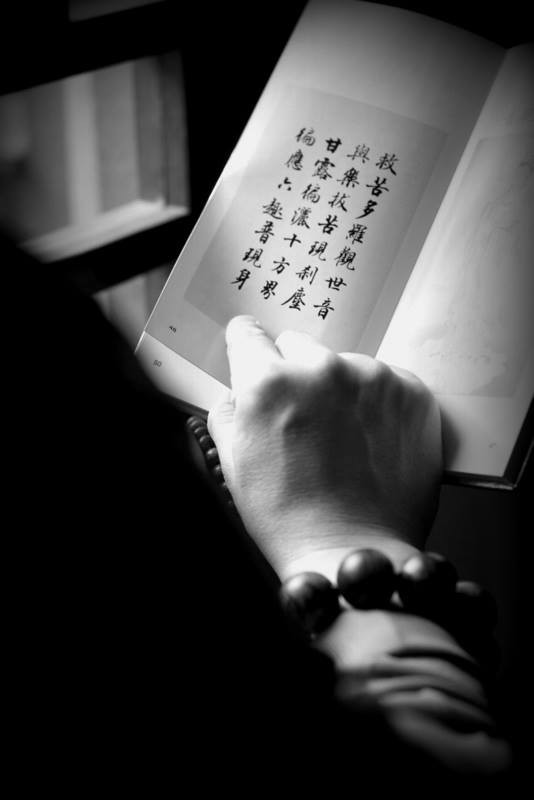 救苦多羅觀世音
與樂拔苦現剎塵
甘露徧灑十方界
徧應六趣普現身
50